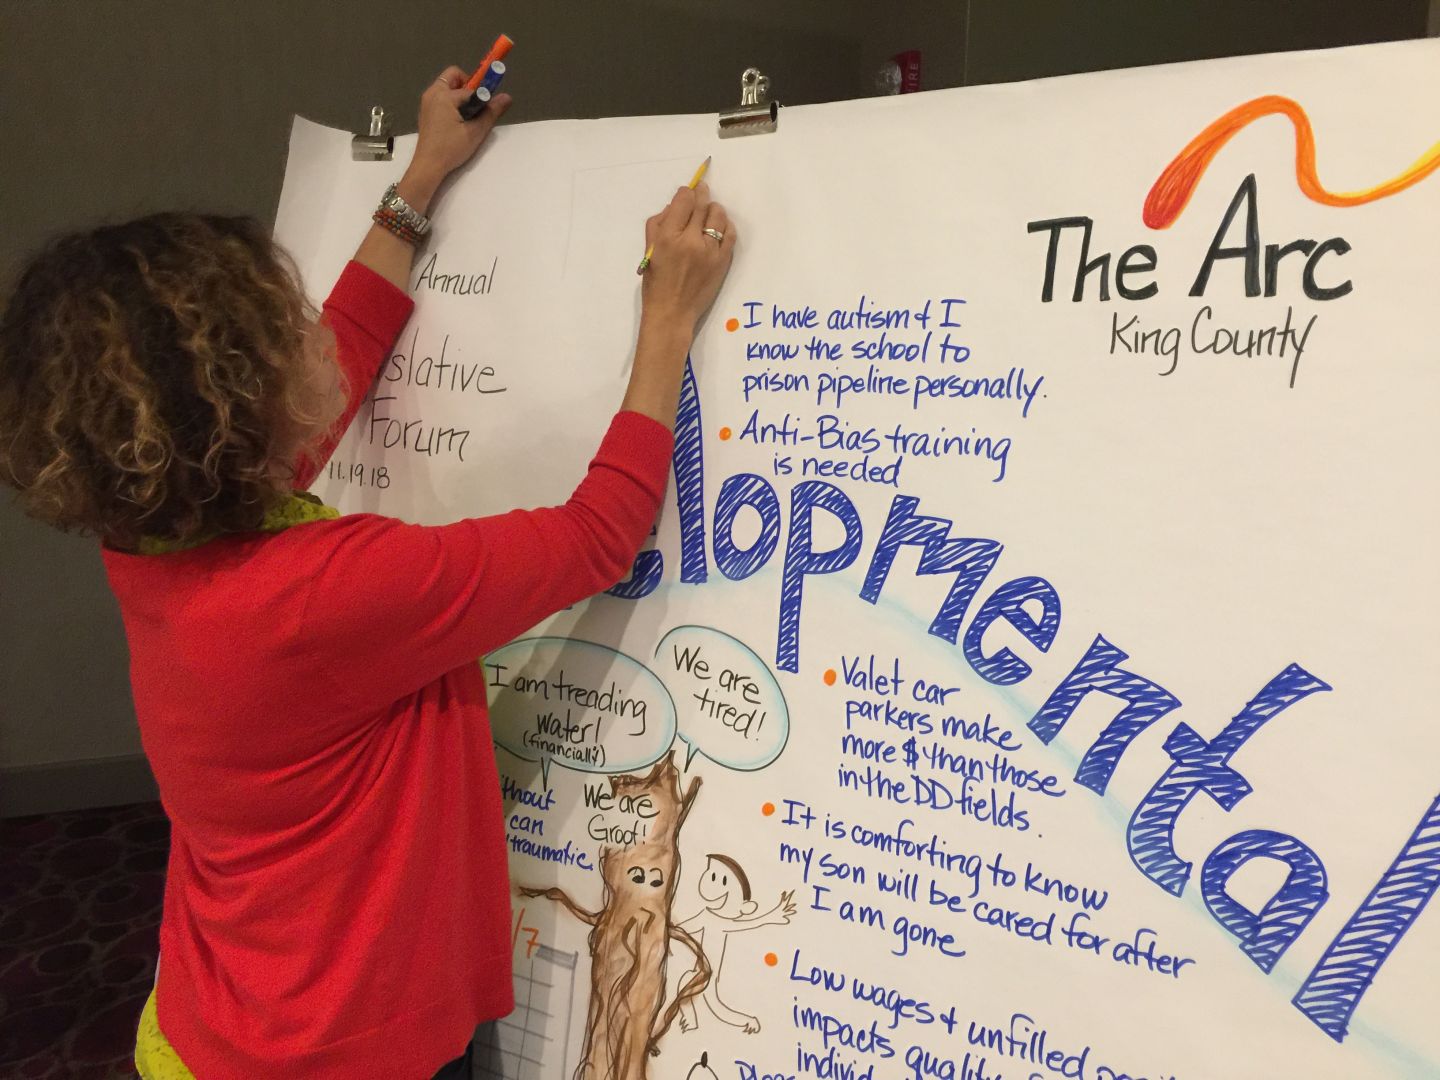 Annual
slative
Forum
11.19.18
The Arc
King County
• I have autism & I
know the school to
prison pipeline personally.
• Anti-Bias training
is needed
elopmental
I am treading
water!
(financially)
We are
tired!
We are
Groot!
thout
can
traumatic
/7
• Valet car
parkers make
more $ than those
in the DD fields.
• It is comforting to know
my son will be cared for after
I am gone
• Low wages & unfilled
impacts quality
individ